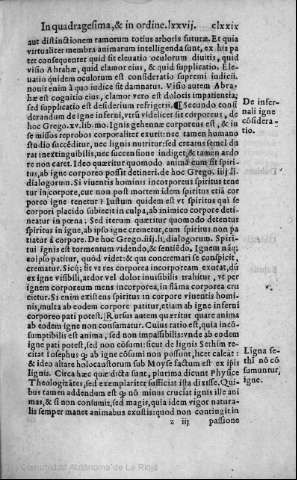 In quadragesima, & in ordine. lxxvij. clxxix
aut distinctionem ramorum totius arboris futuræ. Et quia
virtualiter membra animarum intelligenda sunt, ex his pa
tet consequenter quid sit eleuatio oculorum diuitis, quid
visio Abrahæ, quid clamor eius, & quid supplicatio. Ele-
uatio quidem oculorum est consideratio supremi iudicii.
nouit enim à quo iudice sit damnatus. Visio autem Abra-
hæ est cognitio eius, clamor vero est doloris impatientia;
sed supplicatio est desiderium refrigerii. ¶ Secundo consi
derandum de igne inferni, vtrũ videlicet sit corporeus, de
hoc Grego. xv. lib. mo. Ignis gehennę corporeus est, & in
se missos reprobos corporaliter exurit: nec tamen humano
studio succēditur, nec lignis nutritur: sed creatus semel du
rat inextinguibilis, nec succensione indiget, & tamen ardo
re non caret. Ideo quæritur quomodo anima cum sit spiri-
tus, ab igne corporeo possit detineri. de hoc Grego. iiij. li.
dialogorum. Si viuentis hominis incorporeus spiritus tene
tur in corpore, cur non post mortem idem spiritus etiā cor
poreo igne tenetur? Iustum quidem est vt spiritus qui se
corpori placido subiecit in culpa, ab inimico corpore deti-
neatur in pena. Sed iterum quæritur quomodo detentus
spiritus in igne, ab ipso igne cremetur, cum spiritus non pa
tiatur à corpore. De hoc Grego. iiij. li. dialogorum. Spiri-
tui ignis est tormentum videndo, & sentiẽdo. Ignem nāq;
eo ipso patitur, quòd videt: & qui concremari se conspicit,
crematur. Sicq; fit vt res corporea incorpoream exurat, dũ
ex igne visibili, ardor vel dolor inuisibilis trahitur, vt per
ignem corporeum mens incorporea, in flāma corporea cru
cietur. Si enim existens spiritus in corpore viuentis homi-
nis, multa ab eodem corpore patitur, etiam ab igne inferni
corporeo pati potest. ¶ Rursus autem quæritur quare anima
ab eodem igne non consumatur. Cuius ratio est, quia incõ-
sumptibilis est anima, sed non impassibilis: vnde ab eodem
igne pati potest, sed non cõsumi: sicut de lignis Sethim re
citat Iosephus ꝙ ab igne cõsumi non possunt, licet caleāt:
& ideo altare holocaustorum sub Moyse factum est ex ipis
lignis. Circa hæc quæ dicta sunt, plurima dicunt Physicę
Theologizātes, sed exemplariter sufficiat ista dixisse. Qui-
bus tamen addendum est ꝙ nõ minus cruciat ignis ille ani
mas, & si non consumit, sed magis, quia idem vigor natura-
lis semper manet animabus exustis: quod non contingit in
z iij passione
De infer-
nali igne
cõsidera-
tio.
Ligna se-
thĩ nõ cõ
sumuntur,
igne.
Comunidad Autónoma de La Rioja